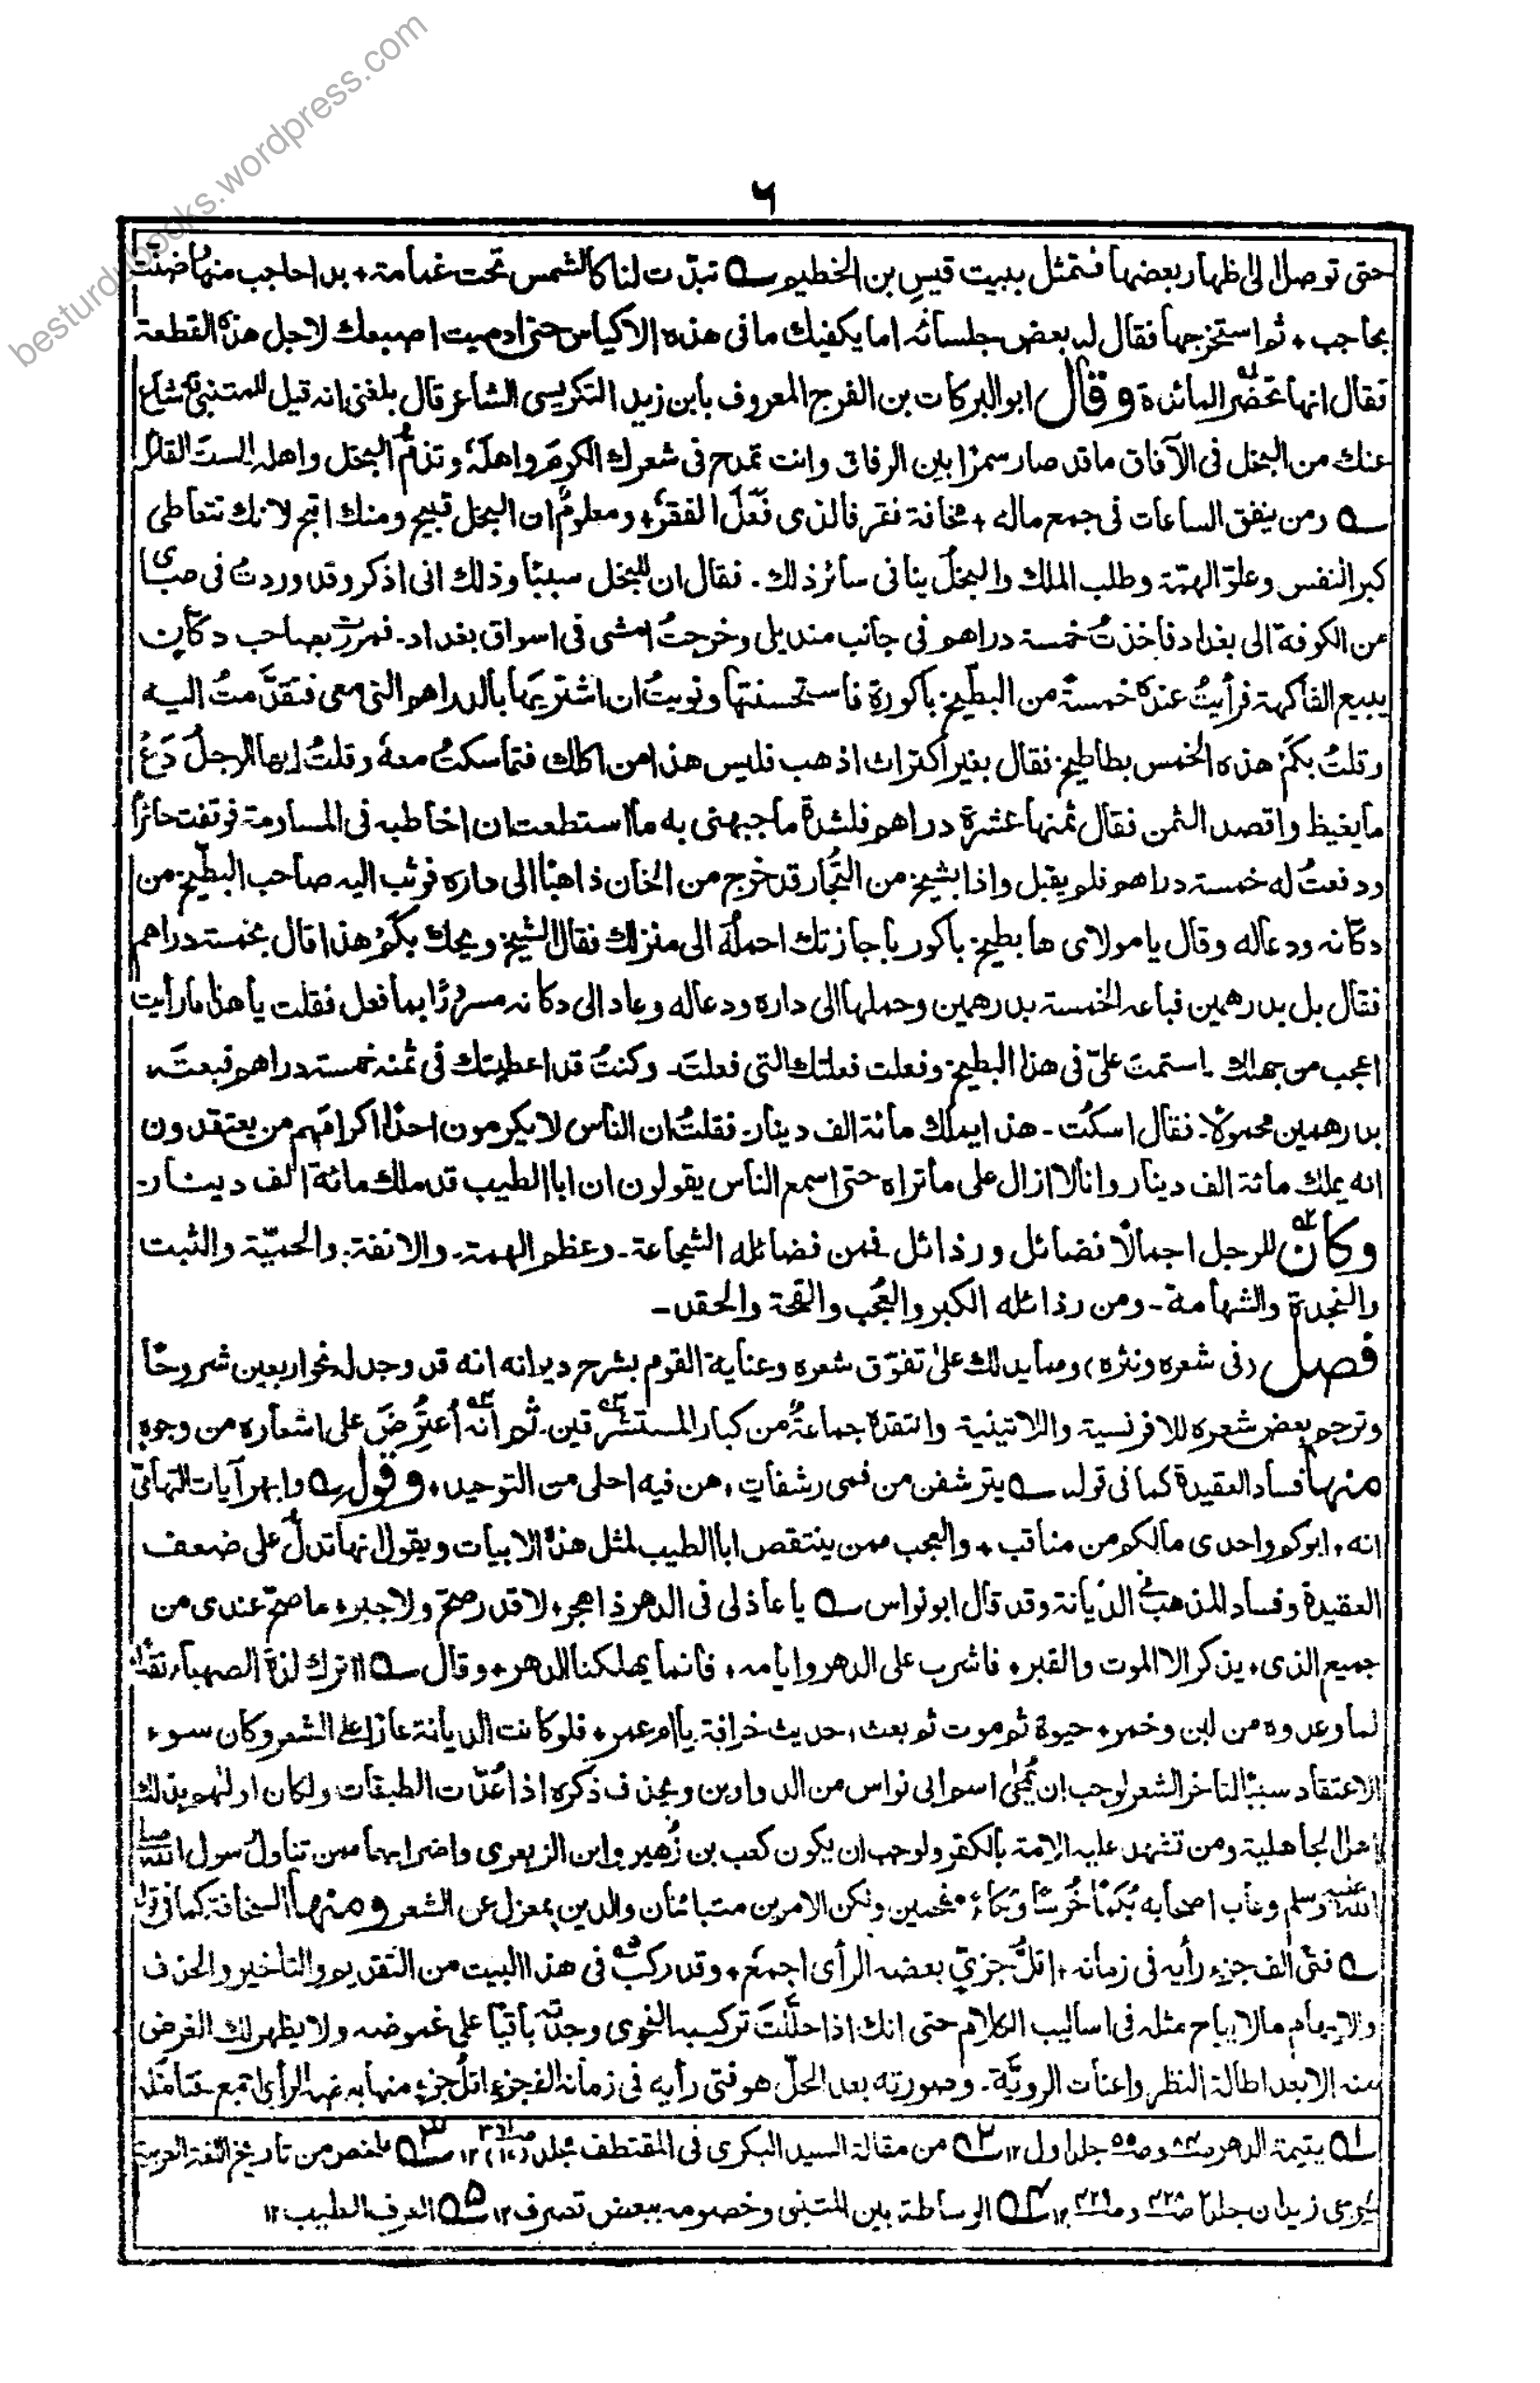 besturdubooks.wordpress.com
٦
حتى توصل الى اظهار بعضها فتمثل ببيت قيس بن الخطيم ؎ تبدّت لنا كالشمس تحت غمامة ٭ بدا حاجب منها وضنّت
بحاجب ٭ ثم استخرجها فقال له بعض جلسائه اما يكفيك ما فى هذه الاكياس حتى ادميت اصبعك لاجل هذه القطعة
فقال انها تحضر المائدة وقال ابو البركات بن الفرج المعروف بابن زيد التكريتى الشاعر قال بلغنى انه قيل للمتنبى قد شاع
عنك من البخل فى الآفاق ما قد صار سمرًا بين الرفاق وانت تمدح فى شعرك الكرم واهلَه وتذمُّ البخل واهله الست القائل
؎ ومن ينفق الساعات فى جمع ماله ٭ مخافة فقر فالذى فَعَلَ الفقرُ ٭ ومعلومٌ ان البخل قبيح ومنك اقبح لانك تتعاطى
كبر النفس وعلوّ الهمّة وطلب الملك والبخلُ ينافى سائر ذلك ۔ فقال ان للبخل سببًا وذلك انى اذكر وقد وردتُ فى صباى
من الكوفة الى بغداد فاخذتُ خمسة دراهم فى جانب منديلى وخرجتُ امشى فى اسواق بغداد ۔ فمررتُ بصاحب دكان
يبيع الفاكهة فرأيتُ عنده خمسةً من البطّيخ باكورة فاستحسنتها ونويتُ ان اشتريها بالدراهم التى معى فتقدَّمتُ اليه
وقلتُ بكَمْ هذه الخمس بطاطيخ فقال بغير اكتراث اذهب فليس هذا من اكلك فتماسكتُ معهٗ وقلتُ ايها الرجلُ دَعْ
ما يغيظ واقصد الثمن فقال ثمنها عشرة دراهم فلشدة ما جبهنى به ما استطعت ان اخاطبه فى المساومة فوقفت حائرًا
ودفعتُ له خمسة دراهم فلم يقبل واذا بشيخ من التُّجار قد خرج من الخان ذاهبًا الى داره فوثب اليه صاحب البطّيخ من
دكانه ودعا له وقال يا مولاى ها بطيخ باكور باجازتك احملُهٗ الى منزلك فقال الشيخ ويحك بكَمْ هذا قال بخمسة دراهم
فقال بل بدرهمين فباعه الخمسة بدرهمين وحملها الى داره ودعا له وعاد الى دكانه مسرورًا بما فعل فقلت يا هذا ما رأيت
اعجب من جهلك ۔ استمتَ علىّ فى هذا البطيخ وفعلت فعلتك التى فعلتَ ۔ وكنتُ قد اعطيتك فى ثمنه خمسة دراهم فبعتَه
بدرهمين محمولاً ۔ فقال اسكت ۔ هذا يملك مائة الف دينار ۔ فقلتُ ان الناس لا يكرمون احدًا اكرامَهم من يعتقدون
انه يملك مائة الف دينار وانا لا ازال على ما تراه حتى اسمع الناس يقولون ان ابا الطيب قد ملك مائة الف دينار ۔
وكان للرجل اجمالًا فضائل ورذائل فمن فضائله الشجاعة ۔ وعظم الهمة ۔ والانفة ۔ والحميّة والثبت
والنجدة والشهامة ۔ ومن رذائله الكبر والعُجب والقحة والحقد ۔
فصل (فى شعره ونثره) ومما يدلك علىٰ تفوّق شعره وعناية القوم بشرح ديوانه انه قد وجد له نحو اربعين شروحًا
وترجم بعض شعره للافرنسية واللاتينية وانتقدهٗ جماعةٌ من كبار المستشرقين ۔ ثم انّه اُعتُرِضَ على اشعاره من وجوه
منها فساد العقيدة كما فى قوله ؎ يترشفن من فمى رشفات ٭ هن فيه احلى من التوحيد ٭ وقوله ؎ وابهر آيات التهامى
انه ٭ ابوكم واحدى ما لكم من مناقب ٭ والعجب ممن ينتقص ابا الطيب لمثل هذه الابيات ويقول انها تدلّ على ضعف
العقيدة وفساد المذهب فى الديانة وقد قال ابو نواس ؎ يا عاذلى فى الدهر ذا هجر ٭ لا قدر صحّ ولا جبر ٭ ما صحّ عندى من
جميع الذى ٭ يذكر الا الموت والقبر ٭ فاشرب على الدهر وايامه ٭ فانما يهلكنا الدهر ٭ وقال ؎ أأترك لذة الصهباء نقدًا
لما وعدوه من لبن وخمر ٭ حيوة ثم موت ثم بعث ٭ حديث خرافة يا ام عمر ٭ فلو كانت الديانة عارًا على الشعر وكان سوء
الاعتقاد سببًا لتاخر الشعر لوجب ان يُمحىٰ اسم ابى نواس من الدواوين ويحذف ذكره اذا عُدّت الطبقات ولكان اولٰهم بذلك
اهل الجاهلية ومن تشهد عليه الامة بالكفر ولوجب ان يكون كعب بن زُهير وابن الزبعرى واضرابهما ممن تناول رسول الله صلى
الله عليه وسلم وعاب اصحابه بُكمًا خُرسًا وبكاء مفحمين ولكن الامرين متباينان والدين بمعزل عن الشعر ومنها السخافة كما فى قوله
؎ فتى الف جزء رأيه فى زمانه ٭ اقلُّ جزىٍّ بعضه الرأى اجمعُ ٭ وقد ركب فى هذا البيت من التقديم والتاخير والحذف
والايهام ما لا يباح مثله فى اساليب الكلام حتى انك اذا حلَلتَ تركيبه النحوى وجدتّه باقيًا على غموضه ولا يظهر لك الغرض
منه الا بعد اطالة النظر واعنات الرويَّة ۔ وصورته بعد الحلّ هو فتى رأيه فى زمانه الف جزء اقلُّ جزء منها بعضه الرأى اجمع ۔ فتامّله
١؎ يتيمة الدهر ص٨٣ و ص٥٥ جلد اول ١٢ ٢؎ من مقالة السيد البكرى فى المقتطف مجلد (١٦) ١٢ ٣؎ ملخص من تاريخ اللغة العربية
لجرجى زيدان جلد٢ ص٢٢٨ و ص٢٢٩ ١٢ ٤؎ الوساطة بين المتنبى وخصومه ببعض تصرف ١٢ ٥؎ العرف الطيب ١٢